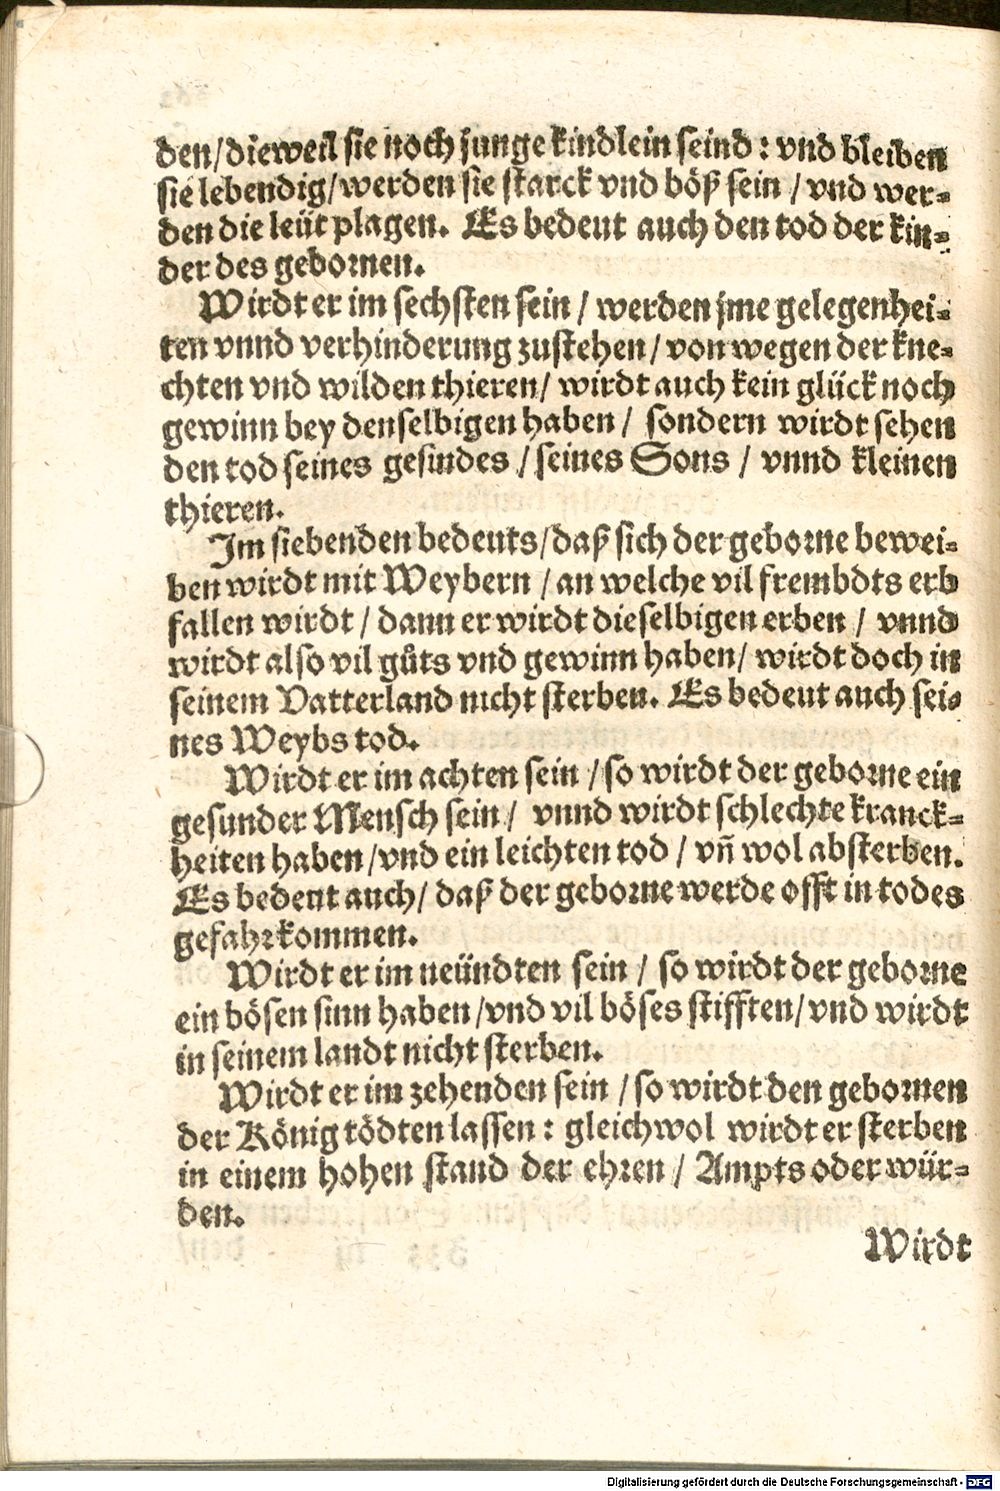 den/dieweil sie noch junge kindlein seind: vnd bleiben
sie lebendig/werden sie starck vnd böß sein/vnd wer-
den die leüt plagen. Es bedeut auch den tod der kin-
der des gebornen.
Wirdt er im sechsten sein/werden jme gelegenhei-
ten vnnd verhinderung zustehen/von wegen der kne-
chten vnd wilden thieren/wirdt auch kein glück noch
gewinn bey denselbigen haben/sondern wirdt sehen
den tod seines gesindes/seines Sons/vnnd kleinen
thieren.
Im siebenden bedeuts/daß sich der geborne bewei-
ben wirdt mit Weybern/an welche vil frembdts erb
fallen wirdt/dann er wirdt dieselbigen erben/vnnd
wirdt also vil gůts vnd gewinn haben/wirdt doch in
seinem Vatterland nicht sterben. Es bedeut auch sei-
nes Weybs tod.
Wirdt er im achten sein/so wirdt der geborne ein
gesunder Mensch sein/vnnd wirdt schlechte kranck-
heiten haben/vnd ein leichten tod/vñ wol absterben.
Es bedeut auch/daß der geborne werde offt in todes
gefahr kommen.
Wirdt er im neündten sein/so wirdt der geborne
ein bösen sinn haben/vnd vil böses stifften/vnd wirdt
in seinem landt nicht sterben.
Wirdt er im zehenden sein/so wirdt den gebornen
der König tödten lassen: gleichwol wirdt er sterben
in einem hohen stand der ehren/Ampts oder wür-
den.
Wirdt
Digitalisierung gefördert durch die Deutsche Forschungsgemeinschaft - DFG